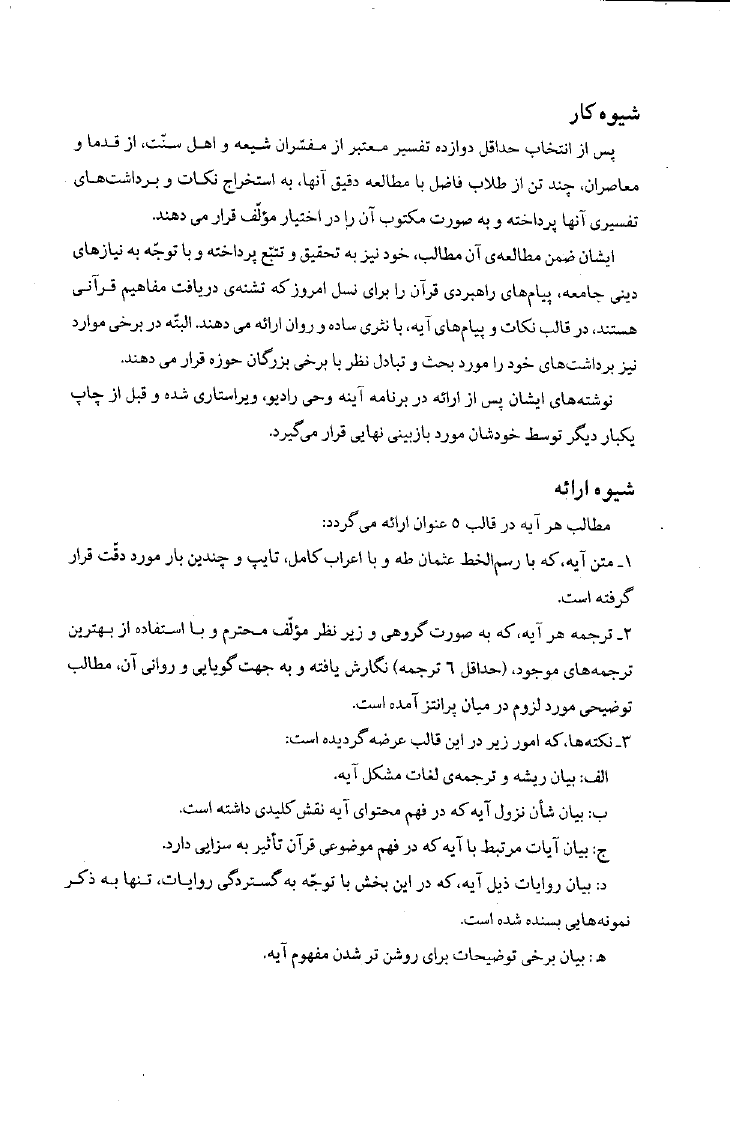 شیوه کار
پس از انتخاب حداقل دوازده تفسیر معتبر از مفسّران شیعه و اهل سنّت، از قدما و
معاصران، چند تن از طلاب فاضل با مطالعه دقیق آنها، به استخراج نکات و برداشت‌های
تفسیری آنها پرداخته و به صورت مکتوب آن را در اختیار مؤلّف قرار می دهند.
ایشان ضمن مطالعه‌ی آن مطالب، خود نیز به تحقیق و تتبّع پرداخته و با توجّه به نیازهای
دینی جامعه، پیام‌های راهبردی قرآن را برای نسل امروز که تشنه‌ی دریافت مفاهیم قرآنی
هستند، در قالب نکات و پیام‌های آیه، با نثری ساده و روان ارائه می دهند. البتّه در برخی موارد
نیز برداشت‌های خود را مورد بحث و تبادل نظر با برخی بزرگان حوزه قرار می دهند.
نوشته‌های ایشان پس از ارائه در برنامه آینه وحی رادیو، ویراستاری شده و قبل از چاپ
یکبار دیگر توسط خودشان مورد بازبینی نهایی قرار می‌گیرد.
شیوه ارائه
مطالب هر آیه در قالب ۵ عنوان ارائه می‌گردد:
۱ـ متن آیه، که با رسم‌الخط عثمان طه و با اعراب کامل، تایپ و چندین بار مورد دقّت قرار
گرفته است.
۲ـ ترجمه هر آیه، که به صورت گروهی و زیر نظر مؤلّف محترم و با استفاده از بهترین
ترجمه‌های موجود، (حداقل ٦ ترجمه) نگارش یافته و به جهت گویایی و روانی آن، مطالب
توضیحی مورد لزوم در میان پرانتز آمده است.
۳ـ نکته‌ها، که امور زیر در این قالب عرضه گردیده است:
الف: بیان ریشه و ترجمه‌ی لغات مشکل آیه.
ب: بیان شأن نزول آیه که در فهم محتوای آیه نقش کلیدی داشته است.
ج: بیان آیات مرتبط با آیه که در فهم موضوعی قرآن تأثیر به سزایی دارد.
د: بیان روایات ذیل آیه، که در این بخش با توجّه به گستردگی روایات، تنها به ذکر
نمونه‌هایی بسنده شده است.
ه‍: بیان برخی توضیحات برای روشن تر شدن مفهوم آیه.